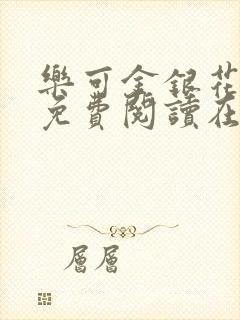 樂可金銀花
免費閱讀在
層層